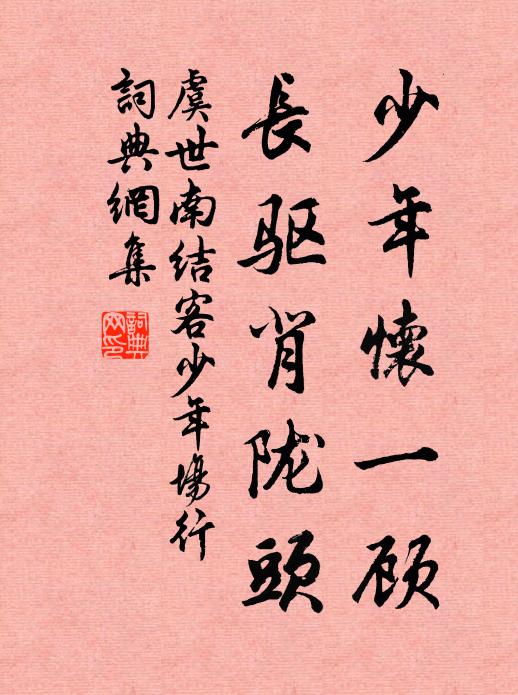 少年懷一顾
長驱背陇頭
虞世南结客少年場行
詞典網集
詞典网印